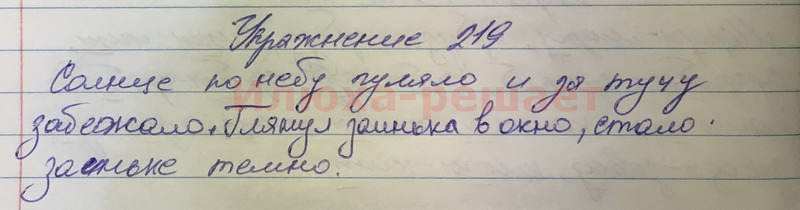 Упражнение 219
Солнце по небу гуляло и за тучу
забежало. Глянул заинька в окно, стало
заиньке темно.
илюха-решает